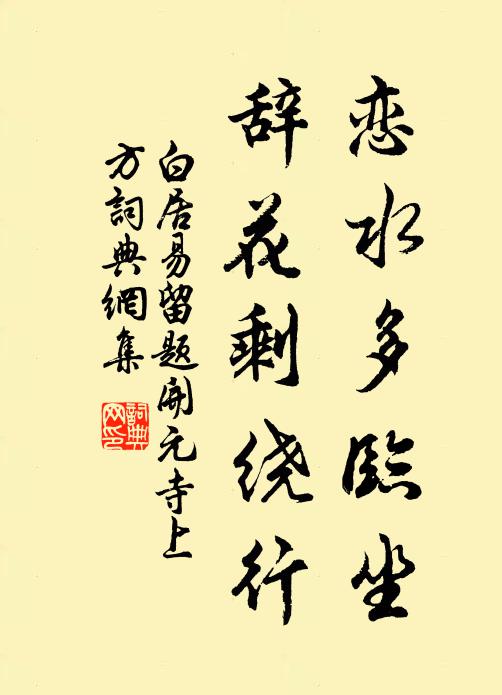 恋水多臨坐
辞花剩绕行
白居易留题開元寺上
方詞典網集
詞典
网印